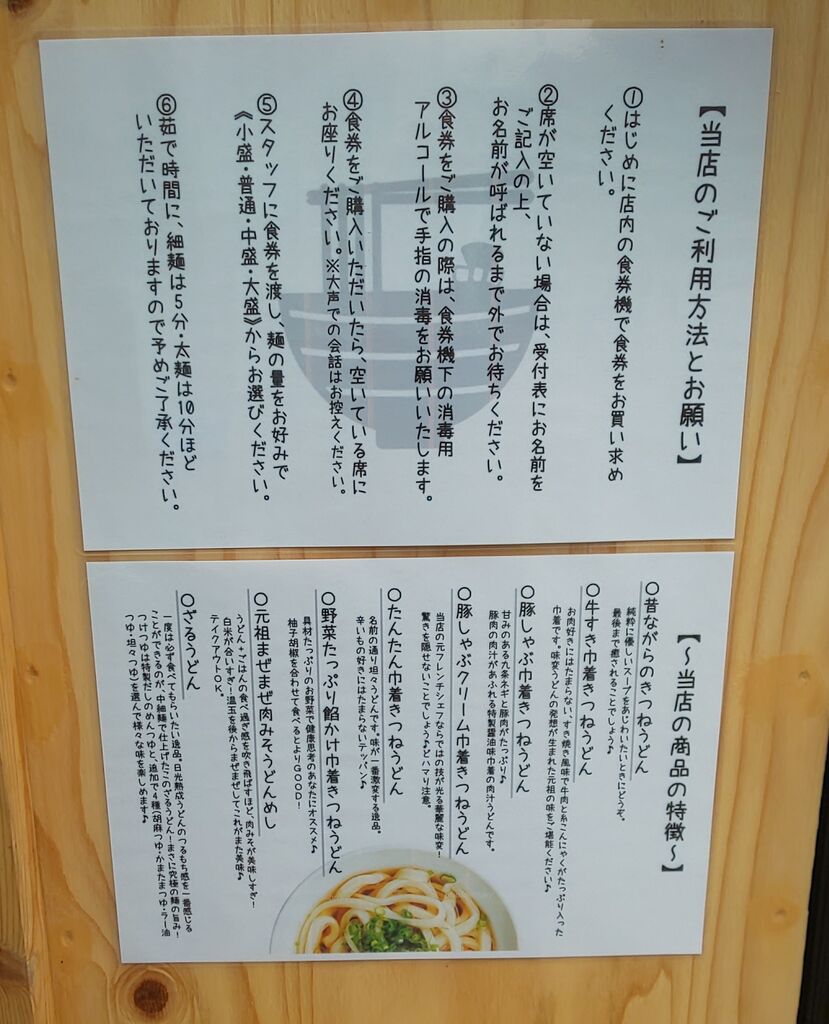 【当店のご利用方法とお願い】
①はじめに店内の食券機で食券をお買い求め
ください。
②席が空いていない場合は、受付表にお名前を
ご記入の上、
お名前が呼ばれるまで外でお待ちください。
③食券をご購入の際は、食券機下の消毒用
アルコールで手指の消毒をお願いいたします。
④食券をご購入いただいたら、空いている席に
お座りください。※大声での会話はお控えください。
⑤スタッフに食券を渡し、麺の量をお好みで
《小盛・普通・中盛・大盛》からお選びください。
⑥茹で時間に、細麺は5分・太麺は10分ほど
いただいておりますので予めご了承ください。
【～当店の商品の特徴～】
〇昔ながらのきつねうどん
純粋に優しいスープをあじわいたいときにどうぞ。
最後まで癒されることでしょう♪
〇牛すき巾着きつねうどん
お肉好きにはたまらない、すき焼き風味で牛肉と糸こんにゃくがたっぷり入った
巾着です。味変うどんの発想が生まれた元祖の味をご堪能ください♪
〇豚しゃぶ巾着きつねうどん
甘みのある九条ネギと豚肉がたっぷり♪
豚肉の肉汁があふれる特製醤油味巾着の肉汁うどんです。
〇豚しゃぶクリーム巾着きつねうどん
当店の元フレンチシェフならではの技が光る華麗な味変！
驚きを隠せないことでしょう♪どハマり注意。
〇たんたん巾着きつねうどん
名前の通り坦々うどんです。味が一番激変する逸品。
辛いもの好きにはたまらないテッパン♪
〇野菜たっぷり餡かけ巾着きつねうどん
具材たっぷりのお野菜で健康思考のあなたにオススメ♪
柚子胡椒を合わせて食べるとよりGOOD！
〇元祖まぜまぜ肉みそうどんめし
うどん＋ごはんの食べ過ぎ感を吹き飛ばすほど、肉みそが美味しすぎ！
白米が合いすぎ！温玉を後からまぜまぜしてこれがまた美味♪
テイクアウトOK。
〇ざるうどん
一度は必ず食べてもらいたい逸品。日光熟成うどんのつるもち感を一番感じる
ことができるのが、中細麺で仕上げたこのざるうどん！まさに究極の麺の旨み！
つけつゆは特製だしのめんつゆと、追加で4種（胡麻つゆ・かまたまつゆ・ラー油
つゆ・坦々つゆ）を選んで様々な味を楽しめます♪